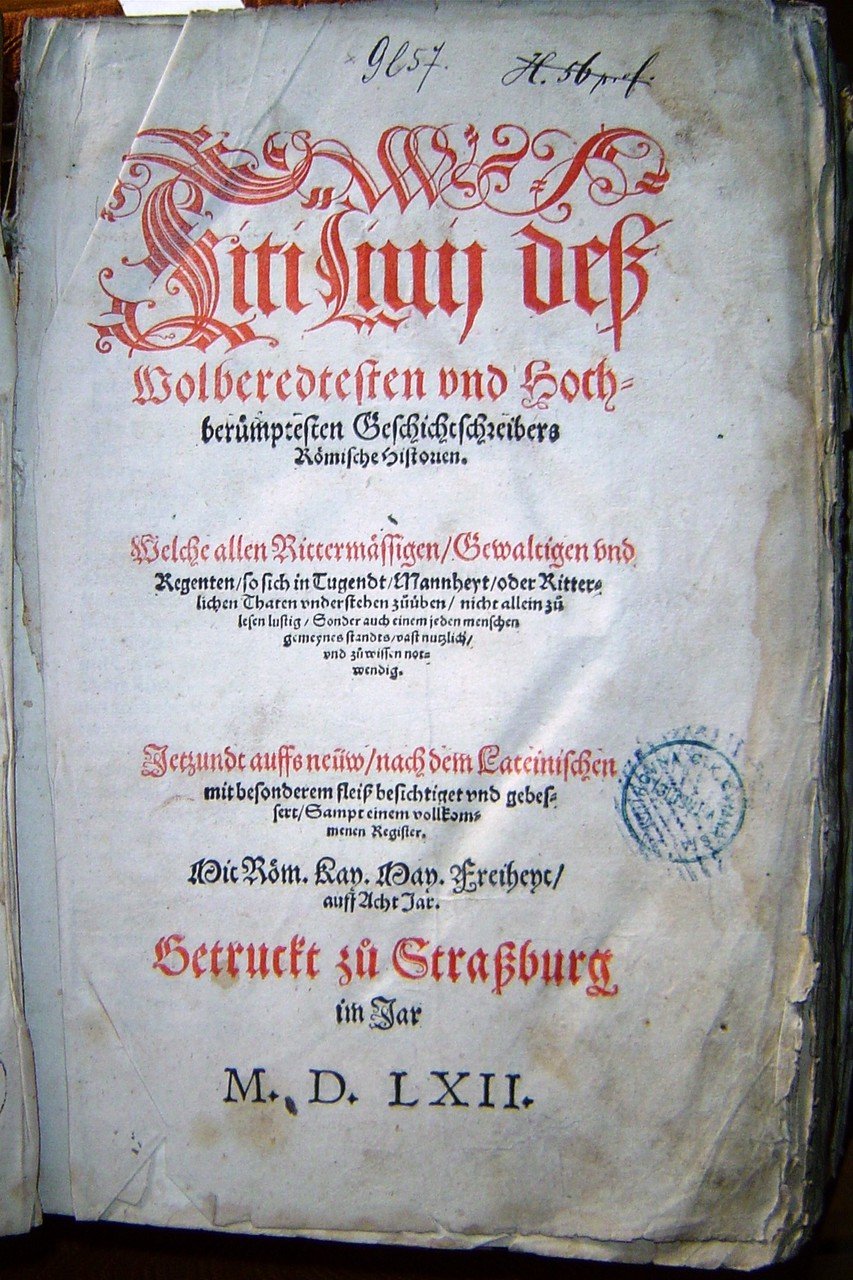 9657. H. 56 pref.
Titi Liuij deß
Wolberedtesten vnd Hoch-
berümptesten Geschichtschreibers
Römische Historien.
Welche allen Rittermässigen/Gewaltigen vnd
Regenten/so sich in Tugendt/Mannheyt/oder Ritter-
lichen Thaten vnderstehen zůüben/ nicht allein zů
lesen lustig/ Sonder auch einem jeden menschen
gemeynes standts/vast nutzlich/
vnd zů wissen not-
wendig.
Jetzundt auffs neüw/nach dem Lateinischen
mit besonderem fleiß besichtiget vnd gebes-
sert/Sampt einem vollkom-
menen Register.
Mit Röm. Kay. May. Freiheyt/
auff Acht Jar.
Getruckt zů Straßburg
im Jar
M. D. LXII.